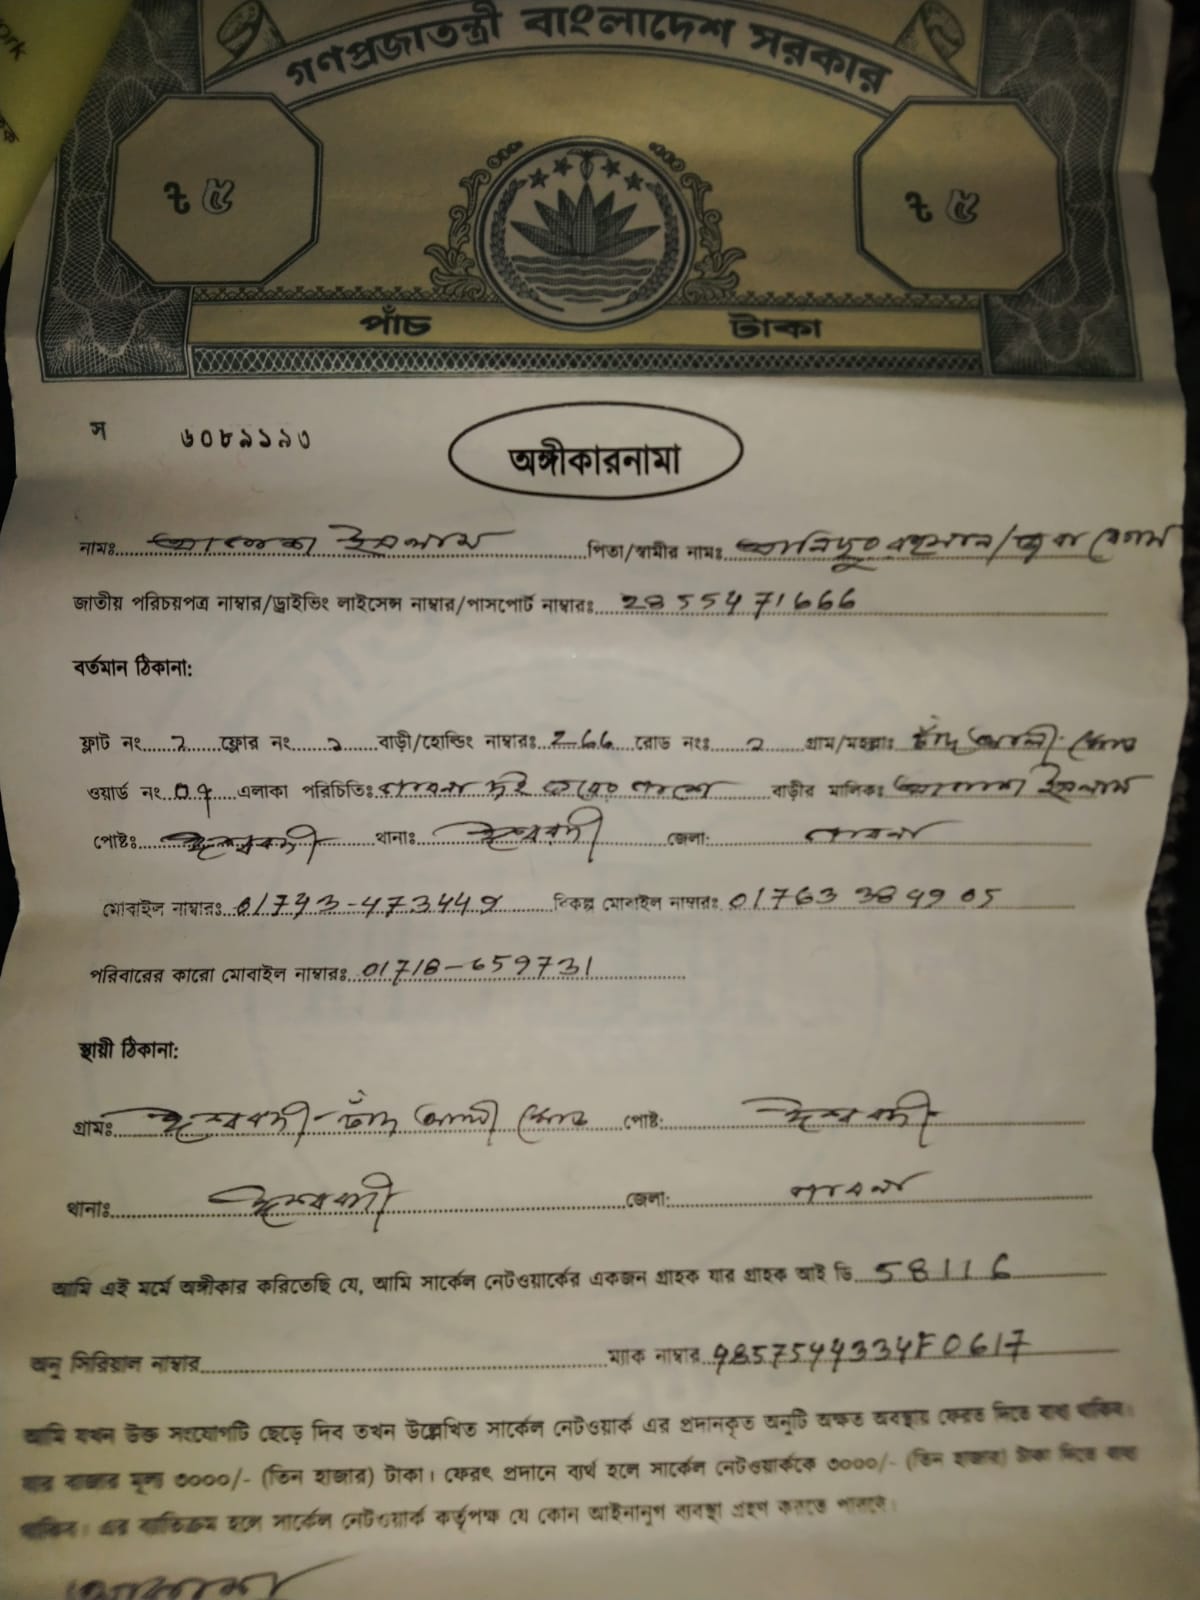 গণপ্রজাতন্ত্রী বাংলাদেশ সরকার
৳ ৫ ৳ ৫
পাঁচ টাকা
স ৬০৮৯১৯৩
অঙ্গীকারনামা
নামঃ ইসলাম পিতা/স্বামীর নামঃ
জাতীয় পরিচয়পত্র নাম্বার/ড্রাইভিং লাইসেন্স নাম্বার/পাসপোর্ট নাম্বারঃ 2855471666
বর্তমান ঠিকানা:
ফ্লাট নং ফ্লোর নং বাড়ী/হোল্ডিং নাম্বারঃ 266 রোড নংঃ গ্রাম/মহল্লাঃ চাঁদ আলী মোড়
ওয়ার্ড নং 07 এলাকা পরিচিতিঃ বাড়ীর মালিকঃ ইসলাম
পোষ্টঃ ঈশ্বরদী থানাঃ ঈশ্বরদী জেলা: পাবনা
মোবাইল নাম্বারঃ 01743-473449 বিকল্প মোবাইল নাম্বারঃ 01763 384905
পরিবারের কারো মোবাইল নাম্বারঃ 01718-659731
স্থায়ী ঠিকানা:
গ্রামঃ ঈশ্বরদী চাঁদ আলী মোড় পোষ্ট: ঈশ্বরদী
থানাঃ ঈশ্বরদী জেলা: পাবনা
আমি এই মর্মে অঙ্গীকার করিতেছি যে, আমি সার্কেল নেটওয়ার্কের একজন গ্রাহক যার গ্রাহক আই ডি 58116
অনু সিরিয়াল নাম্বার ম্যাক নাম্বার 9857544334F0617
আমি যখন উক্ত সংযোগটি ছেড়ে দিব তখন উল্লেখিত সার্কেল নেটওয়ার্ক এর প্রদানকৃত অনুটি অক্ষত অবস্থায় ফেরত দিতে বাধ্য থাকিব।
যার বাজার মূল্য ৩০০০/- (তিন হাজার) টাকা। ফেরৎ প্রদানে ব্যর্থ হলে সার্কেল নেটওয়ার্ককে ৩০০০/- (তিন হাজার) টাকা দিতে বাধ্য
থাকিব। এর ব্যতিক্রম হলে সার্কেল নেটওয়ার্ক কর্তৃপক্ষ যে কোন আইনানুগ ব্যবস্থা গ্রহণ করতে পারবে।